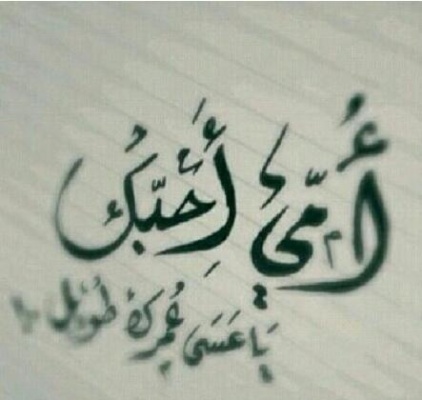 أُمّي أُحِبّك
يَا عَسَى عُمرك طُويل